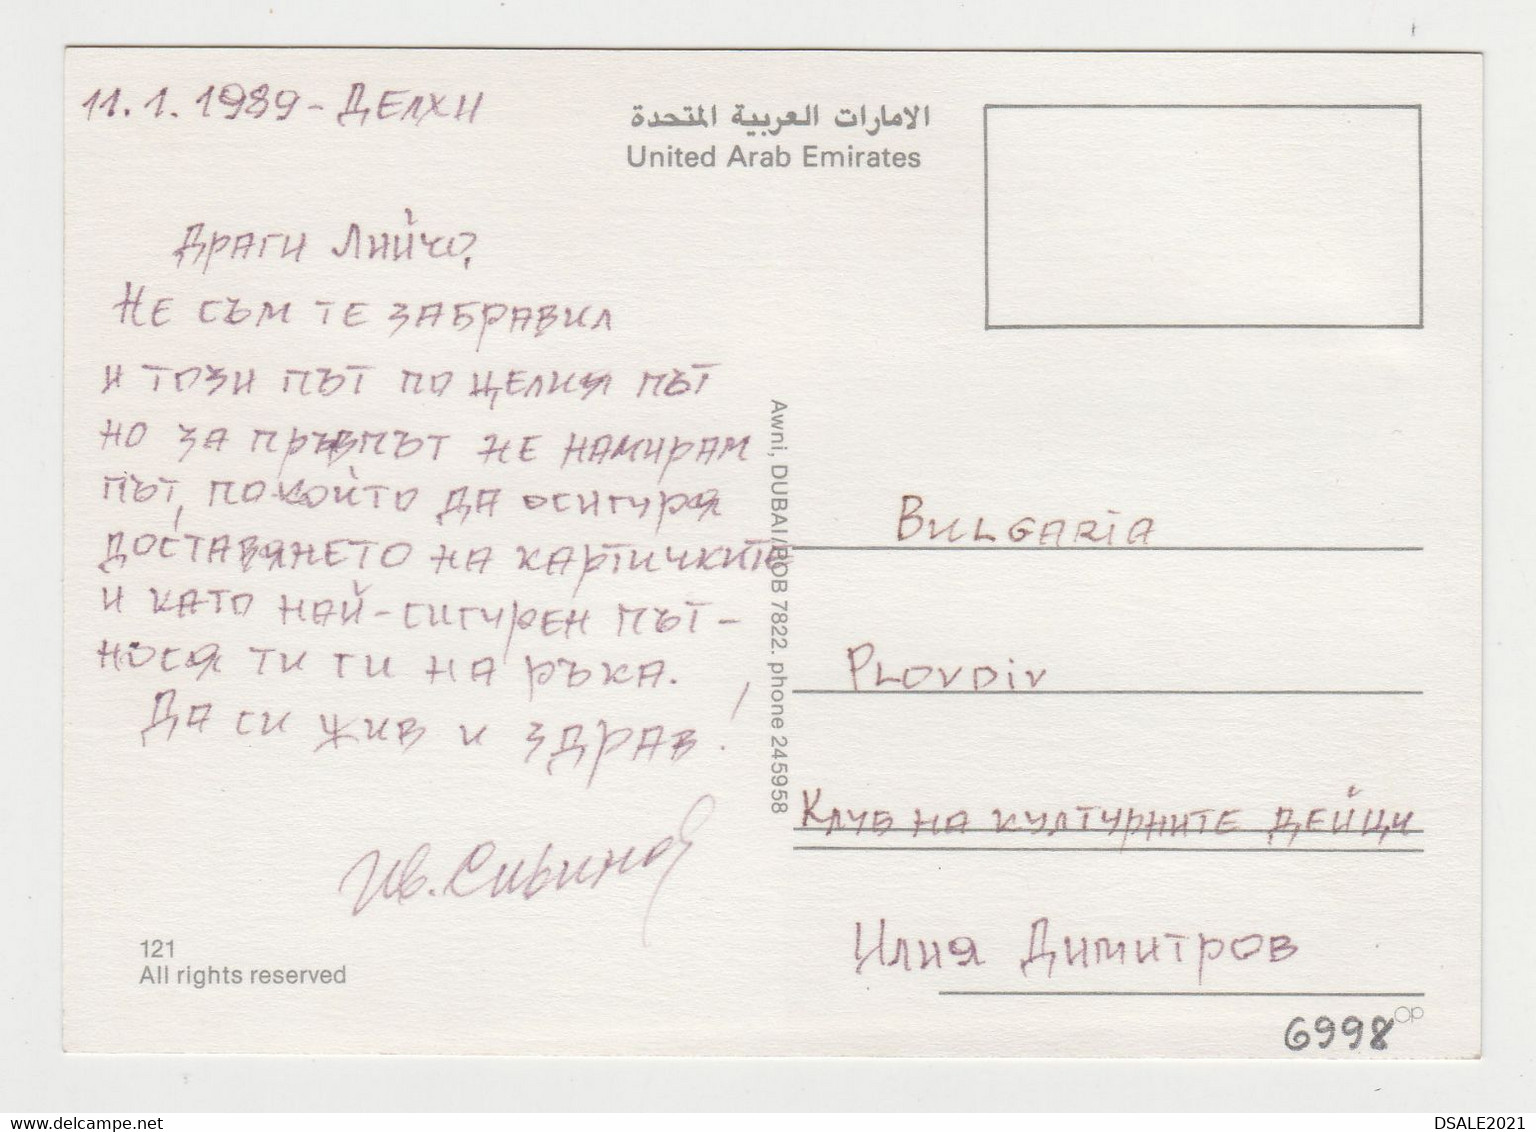 11.1.1989 - ДЕЛХИ
ДРАГИ ЛИЙЧО,
НЕ СЪМ ТЕ ЗАБРАВИЛ
И ТОЗИ ПЪТ ПО ЦЕЛИЯ ПЪТ
НО ЗА ПРЪВ ПЪТ НЕ НАМИРАМ
ПЪТ, ПО КОЙТО ДА ОСИГУРЯ
ДОСТАВЯНЕТО НА КАРТИЧКИТЕ
И КАТО НАЙ-СИГУРЕН ПЪТ -
НОСЯ ТИ ГИ НА РЪКА.
ДА СИ ЖИВ И ЗДРАВ!
Ив.
121
All rights reserved
الامارات العربية المتحدة
United Arab Emirates
Awni, DUBAI/POB 7822. phone 245958
BULGARIA
PLOVDIV
КЛУБ НА КУЛТУРНИТЕ ДЕЙЦИ
ИЛИЯ ДИМИТРОВ
Op
6998
www.delcampe.net
DSALE2021